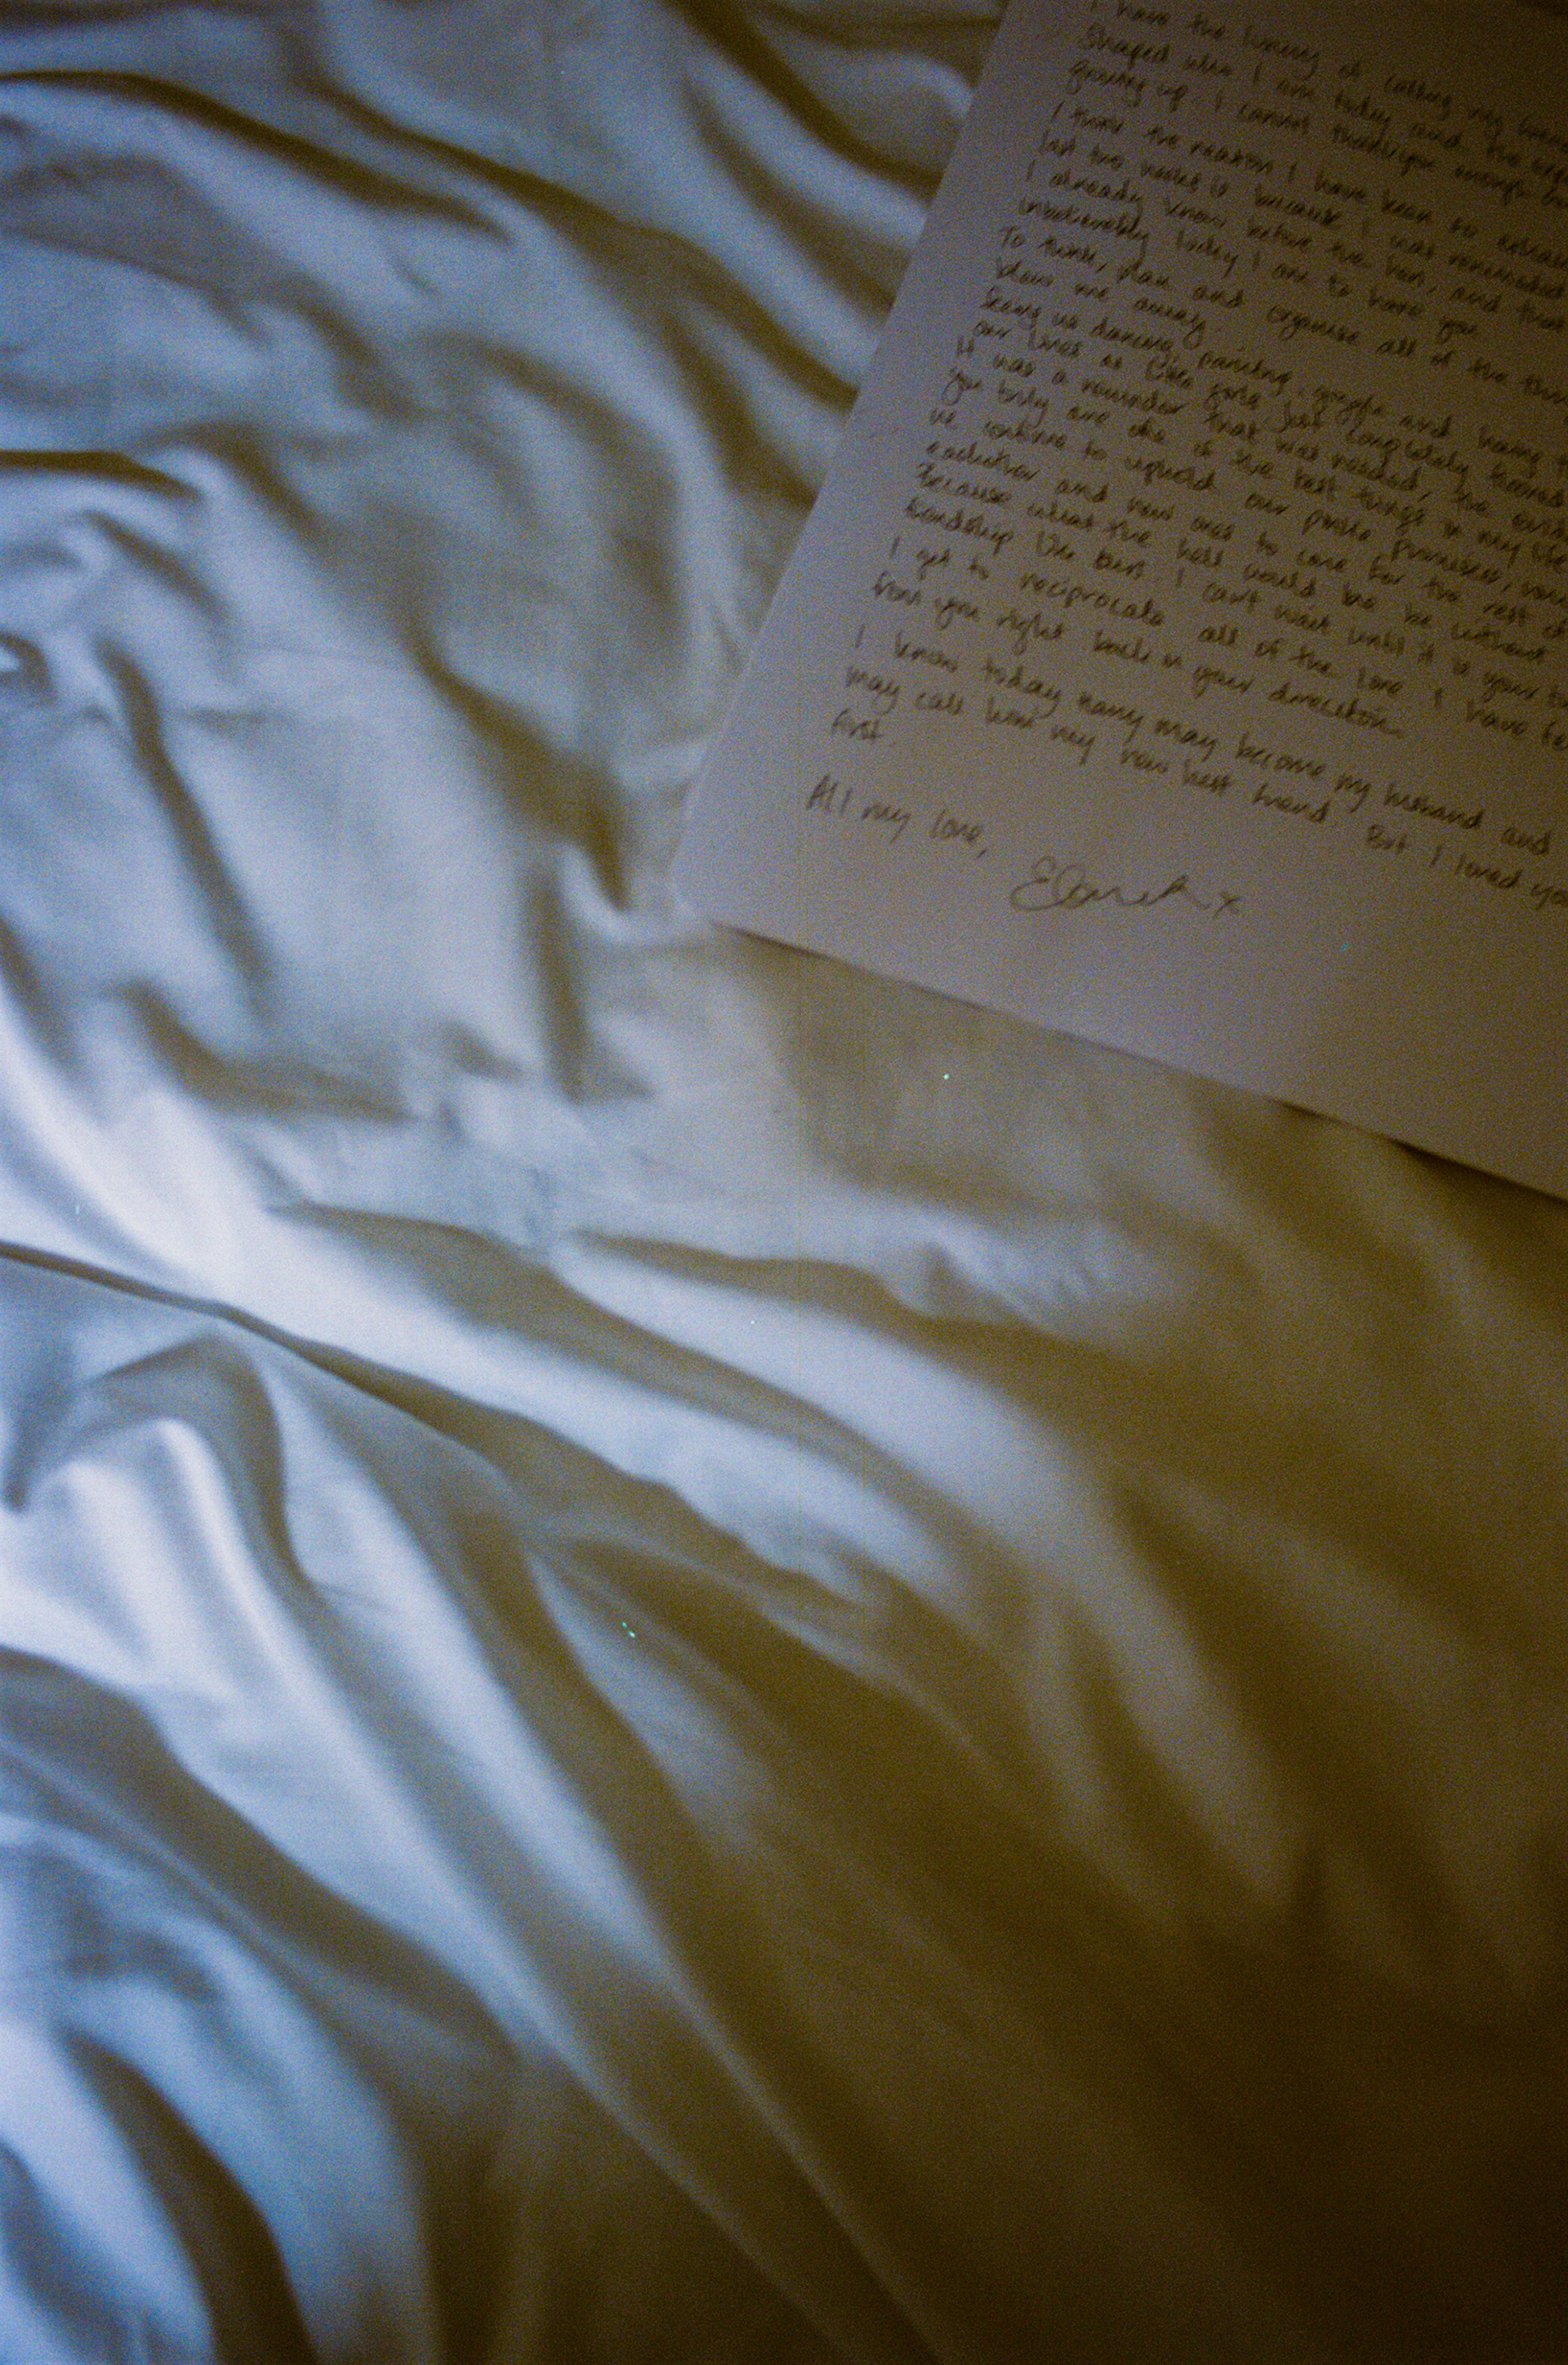 I have the luxury of calling my
shaped who I am today and the
growing up. I cannot thank you enough
I think the reason I have been so
last two weeks is because I was reminded
I already knew before the hen, and that
unbelievably lucky I am to have you.
To think, plan and organise all of the
blows me away.
Seeing us dancing, painting, giggle and having
our lives as little girls just completely
It was a reminder that was needed, the
you truly are one of the best things in my life
we continue to uphold our pinkie promises,
and now ones to come for the rest of
Because what the hell would we be without
friendship like ours. I can't wait until it is your
I get to reciprocate all of the love I have
from you right back in your direction.
I know today may become my husband and
may call him my new best friend. But I loved you
first.
All my love,
x